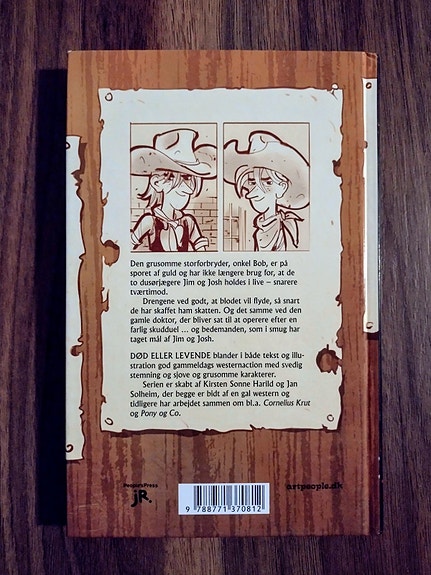 Den grusomme storforbryder, onkel Bob, er på
sporet af guld og har ikke længere brug for, at de
to dusørjægere Jim og Josh holdes i live – snarere
tværtimod.
Drengene ved godt, at blodet vil flyde, så snart
de har skaffet ham skatten. Og det samme ved den
gamle doktor, der bliver sat til at operere efter en
farlig skudduel ... og bedemanden, som i smug har
taget mål af Jim og Josh.
DØD ELLER LEVENDE blander i både tekst og
illustration god gammeldags westernaction med svedig
stemning og sjove og grusomme karakterer.
Serien er skabt af Kirsten Sonne Harild og Jan
Solheim, der begge er bidt af en gal western og
tidligere har arbejdet sammen om bl.a. Cornelius Krut
og Pony og Co.
PeoplesPress
JR.
artpeople.dk
9 788771 370812